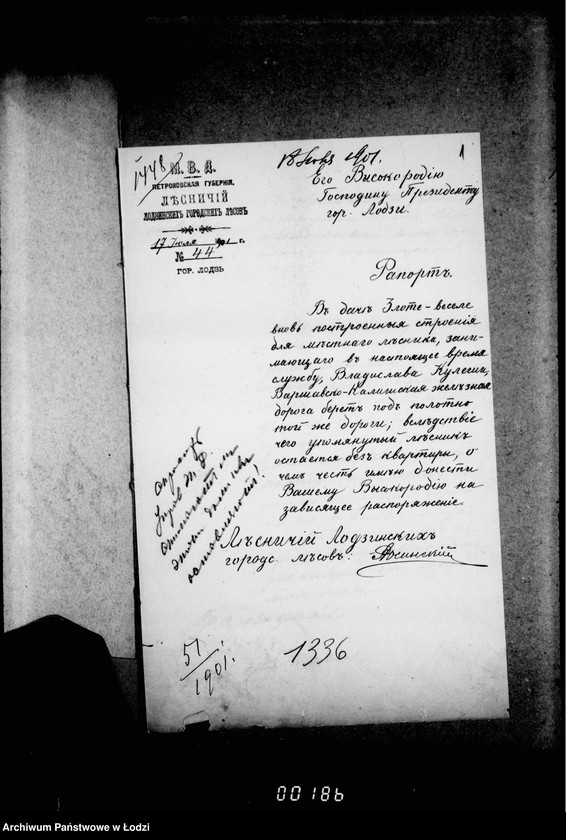 1448
18 Июля 1901.
1
М. В. Д.
ПЕТРОКОВСКАЯ ГУБЕРНІЯ.
ЛѢСНИЧІЙ
ЛОДЗИНСКИХЪ ГОРОДСКИХЪ ЛѢСОВЪ
17 Іюля 1901 г.
№ 44
ГОР. ЛОДЗЬ
Его Высокородію
Господину Президенту
гор. Лодзи.
Рапортъ.
Въ дачѣ Злоте-веселе
вновь построенныя строенія
для мѣстнаго лѣсника, зани-
мающаго въ настоящее время
службу, Владислава Кулеши,
Варшавско-Калишская желѣзная
дорога беретъ подъ полотно
той же дороги; вслѣдствіе
чего упомянутый лѣсникъ
остается безъ квартиры, о
чемъ честь имѣю донести
Вашему Высокородію на
зависящее распоряженіе.
Лѣсничій Лодзинскихъ
городс. лѣсовъ:
51/1901.
1336
00186
Archiwum Państwowe w Łodzi